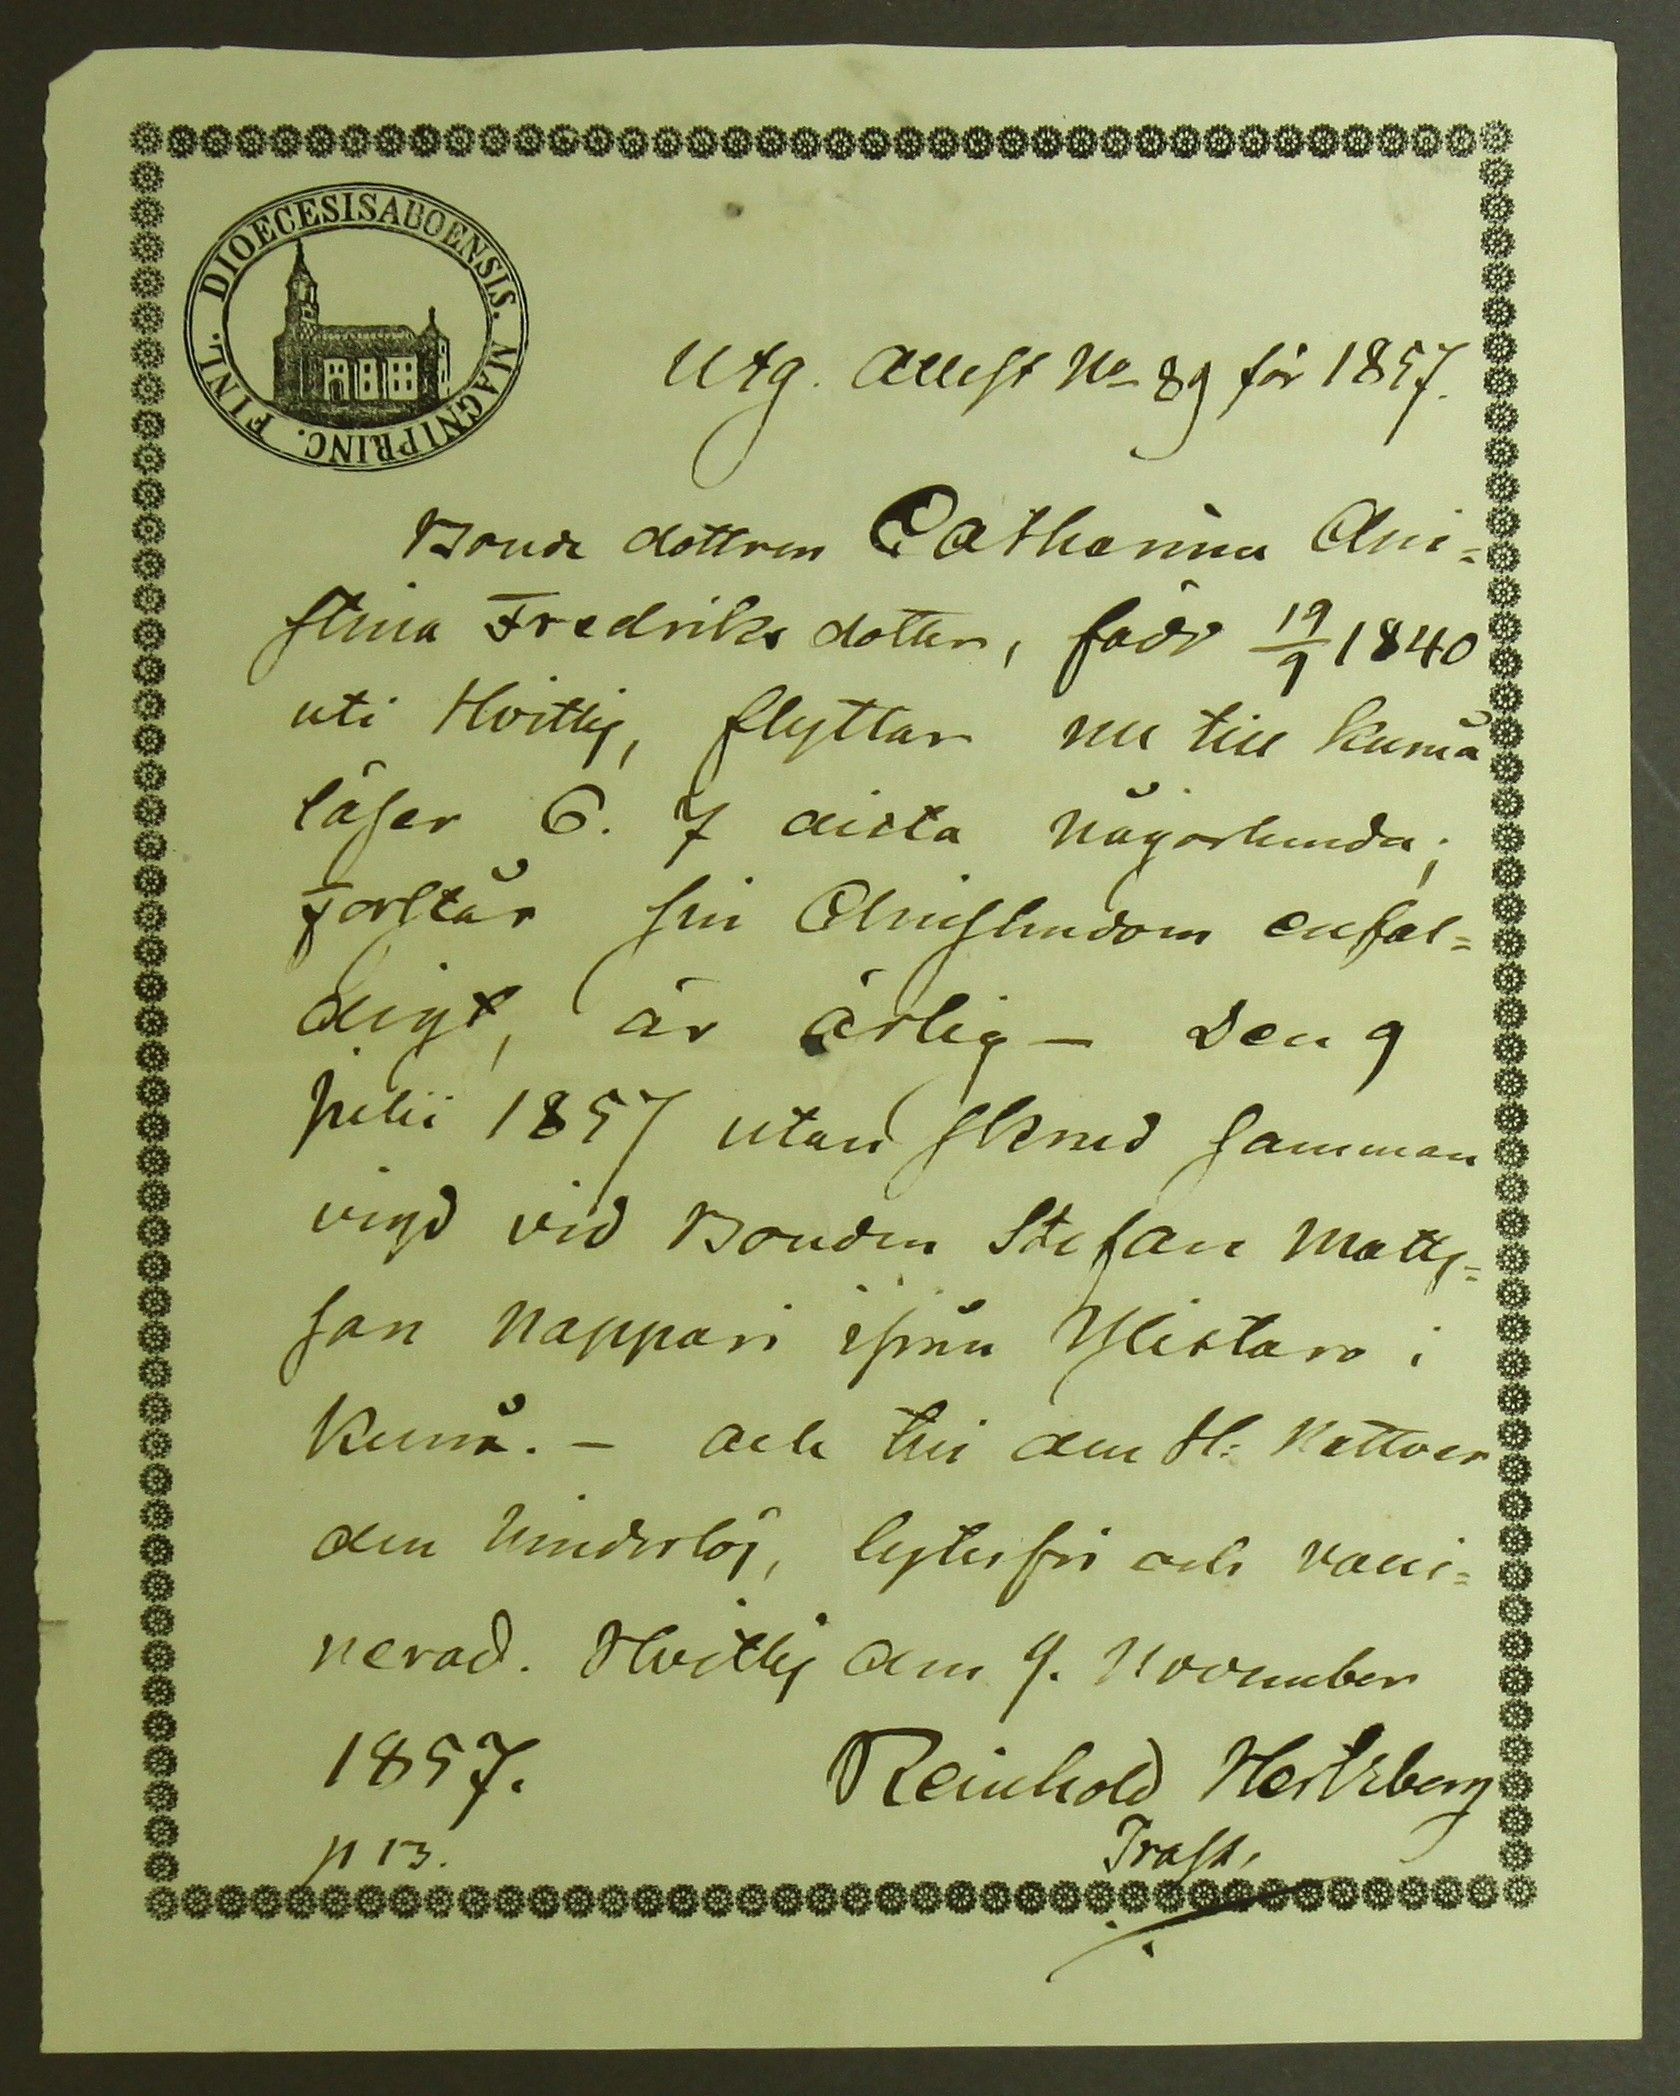 DIOECESIS ABOENSIS. MAGNI PRINC. FINL.
Utg. Attest No 89 för 1857.
Bonde dottren Catharina Chri=
stina Fredriks dotter, född 19/9 1840
uti Hvittis, flyttar nu till Kumå
läser 6. 7 dicta någorlunda;
Forstår sin Christendom enfal=
digt, är ärlig – Den 9
Julii 1857 utan skrud samman
vigd vid Bonden Stefan Matts=
son Nappari ifrån Ylistaro i
Kumå. – och till den H: Nattvar
den hinderlös, lytesfri och vacci=
nerad. Hvittis den 9. November
1857. Reinhold Hertzberg
p 13. Prost.